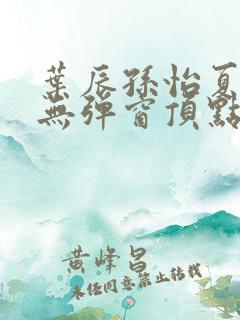 葉辰孫怡夏
無彈窗頂點
黄峰昌
未经同意禁止转载